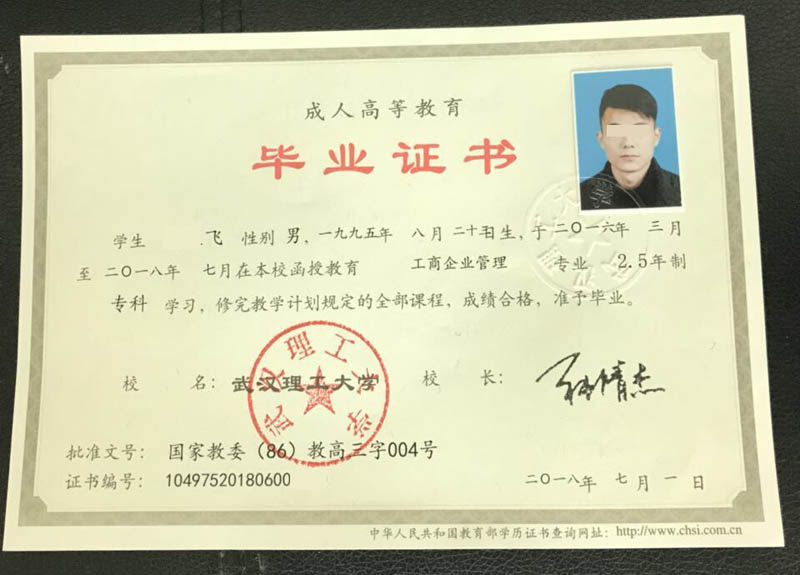 成人高等教育
毕业证书
学生 飞 性别 男，一九九五年 八月 二十 日生，于二〇一六年 三月
至 二〇一八年 七月在本校函授教育 工商企业管理 专业 2.5年制
专科 学习，修完教学计划规定的全部课程，成绩合格，准予毕业。
校 名：武汉理工大学 校 长：
武汉理工大学
批准文号： 国家教委（86）教高三字004号
证书编号： 10497520180600
二〇一八年 七月 一 日
中华人民共和国教育部学历证书查询网址：http://www.chsi.com.cn